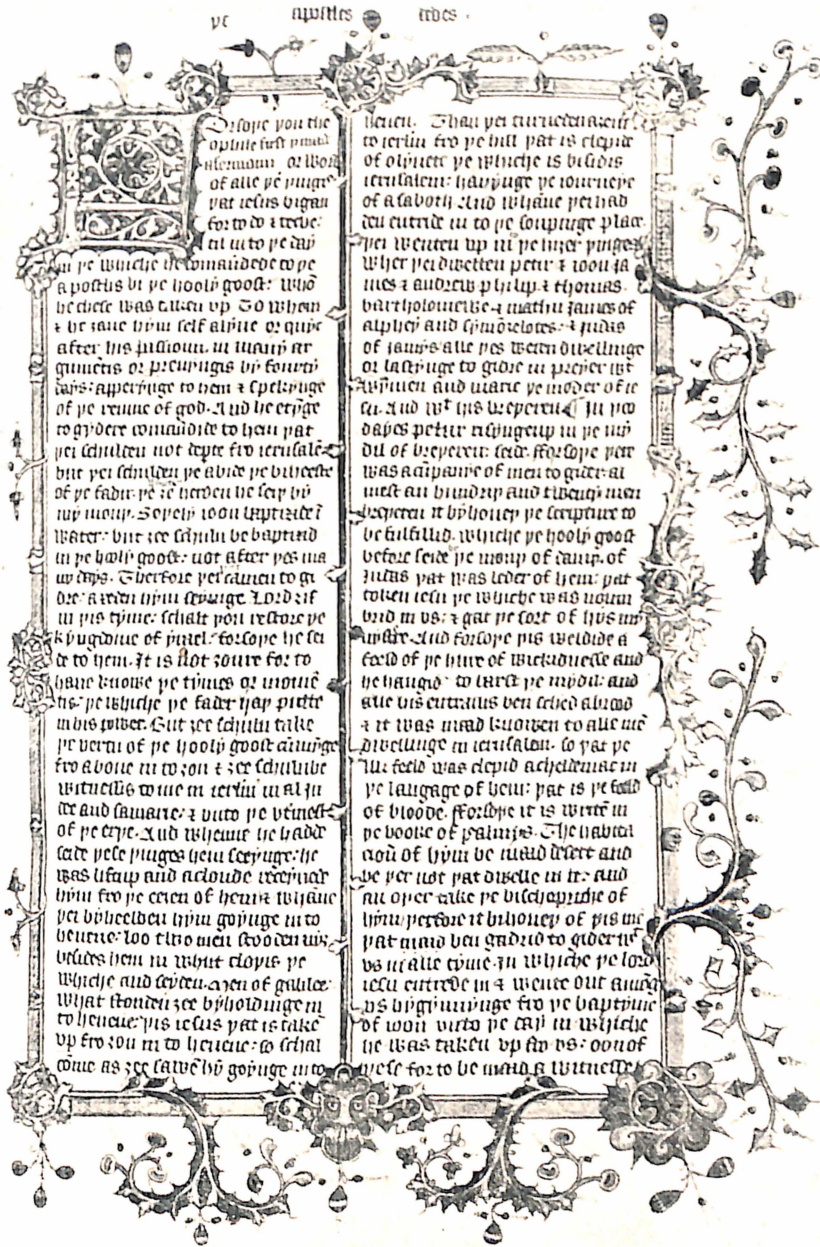 ye apostles dedes.
Forsoþe you the
ophile first
sermoun or word
of alle þe þinges
þat iesus bigan
for to do & teche:
til in to þe day
in þe whiche he comaundede to þe
apostlis bi þe hooly goost: whõ
he chese was taken vp To whom
& he ȝaue hym self alyue or quyc
after his passioun in many ar
gumẽtis or preuyngis by fourty
days: apperynge to hem & spekynge
of þe reume of god. And he etynge
to gydere comaundide to hem þat
þei schulden not depte fro ierusalẽ
but þei schulden þe abide þe biheeste
of þe fadir. þe ȝe herden he seiþ by
my mouþ. Soþely ioon baptizide ĩ
water: but ȝee schuln be baptizid
in þe hooly goost: not after þes ma
ny days. Therfore þei camen to gi
dre: axeden hym seyinge. Lord ȝif
in þis tyme: schalt þou restore þe
kyngdme of ysrael. forsoþe he sei
de to hem. It is not ȝoure for to
haue knowe þe tymes or momẽ
tis: þe whiche þe fader haþ putte
in his power. But ȝee schuln take
þe vertu of þe hooly goost cũmynge
fro aboue in to ȝou & ȝee schulnbe
witnessis to me in ierlm in al iu
dee and samarie: & vnto þe vtmest
of þe erþe. And whenne he hadde
seide þese þinges hem seeynge: he
was liftup and a cloude receyuede
hym fro þe eeien of hem & whãne
þei byheelden hym goynge in to
heuene: loo two men stooden nyȝ
besides hem in whijt cloþis þe
whiche and seyden. Men of galilee
what stonden ȝee byholdinge in
to heuene: þis iesus þat is takẽ
vp fro ȝou in to heuene: so schal
come as ȝee sawe hȳ goynge in to
heuen. Than þei turneden aȝein
to ierlm fro þe hill þat is clepid
of olyuete þe whiche is bisidis
ierusalem: hauynge þe iourneye
of a saboth And whane þei had
den entride in to þe soupinge place
þei wenten vp in þe hiȝer þinges
wher þei dwelten petir & ioon ja
mes & andrew philip & thomas.
bartholomewe & mathu James of
alphey and symõ ȝelotes. & Judas
of jamys alle þes weren dwellinge
or lastynge to gidre in preyer wt
wymmen and marie þe moder of ie
su. And wt his breþeren In þoo
dayes petur risynge up in þe myd
dil of breþeren: seide. fforsoþe þere
was a cũpanye of men to gider. al
mest an hundriþ and twenty men
breþeren it byhoueþ þe scripture to
be fulfillid. whiche þe hooly goost
before seide þe mouþ of dauiþ. of
Judas þat was leder of hem: þat
token iesu þe whiche was noum
brid in vs: & gat þe sort of þys my
nystre. And forsoþe þis weldide a
feeld of þe hire of wickidnesse and
he hangid: to barst þe mydil: and
alle his entrailis ben sched abrod
& it was maad knowen to alle mẽ
dwellinge in ierusalem. so þat þe
ilk feeld was clepid acheldemac in
þe langage of hem: þat is þe feeld
of bloode. fforsoþe it is writẽ in
þe booke of psalmys. The habita
cioũ of hym be maad desert and
be þer not þat dwelle in it: and
an oþer take þe bischopriche of
hym þerfore it bihoueþ of þis mẽ
þat maad ben gadrid to gider wt
vs in alle tyme. in whiche þe lord
iesu entrede in & wente out amõg
vs bygynnynge fro þe baptyme
of ioon vnto þe day in whiche
he was taken vp fro vs: oon of
þese for to be maad a witnesse